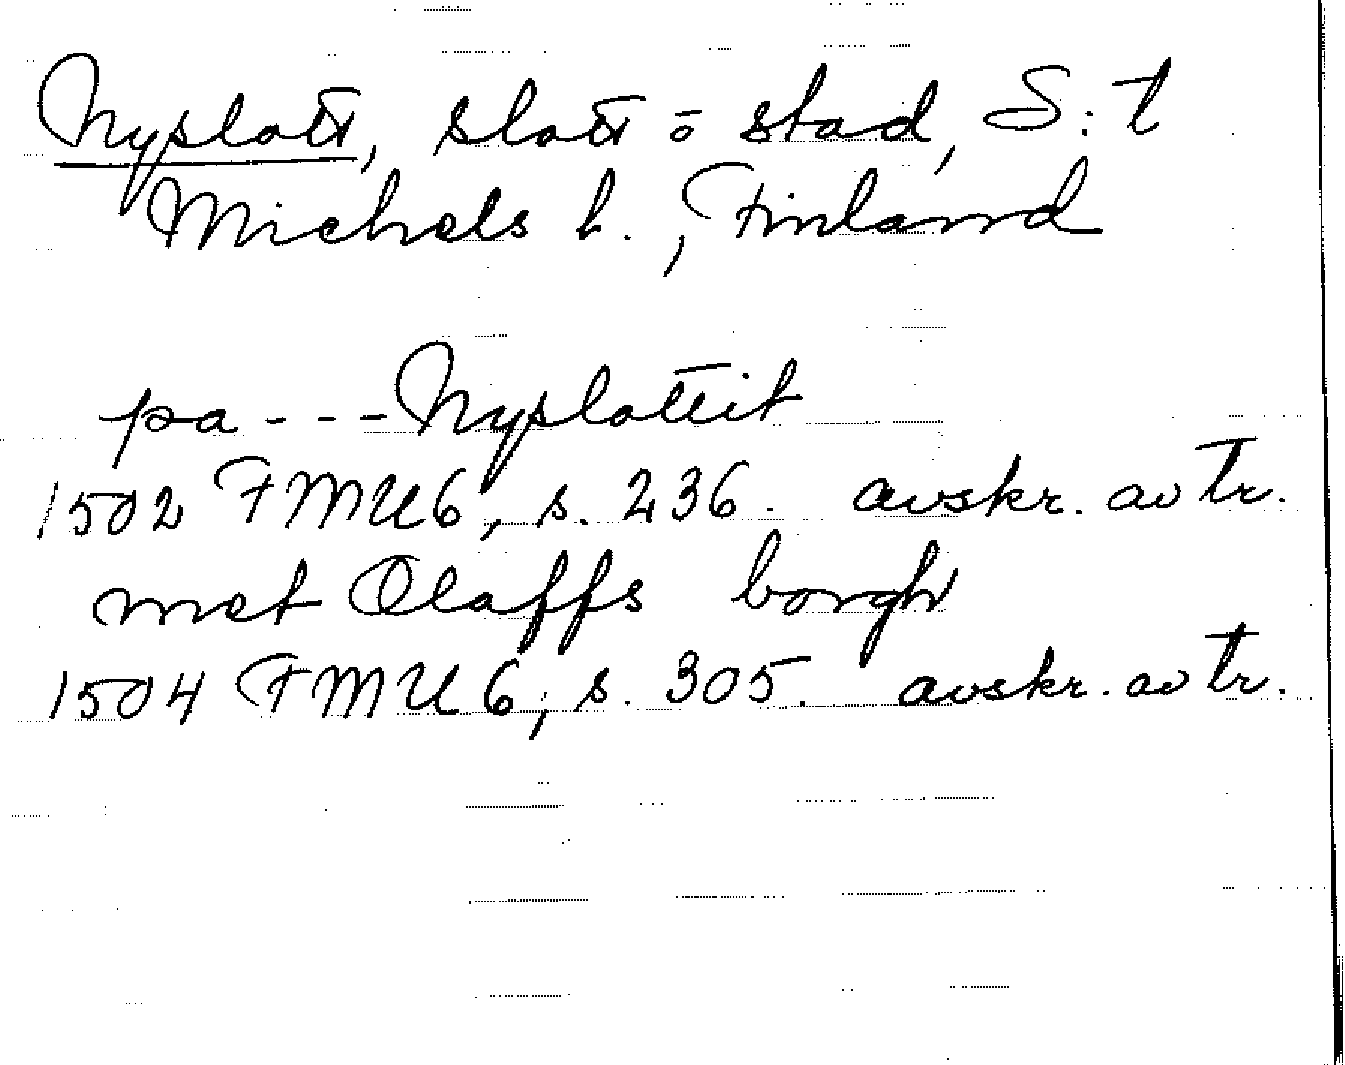 Nyslott, slott o stad, S:t
Michels l., Finland
pa - - - Nyslottit
1502 FMU 6, s. 236. avskr. av tr.
met Olaffs borgh
1504 FMU 6, s. 305. avskr. av tr.